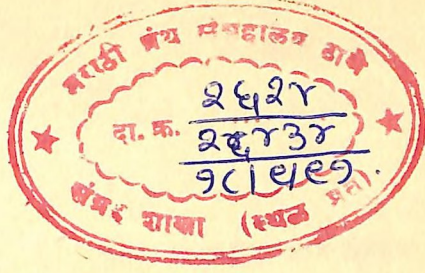 मराठी ग्रंथ संग्रहालय ठाणे
दा. क्र. २६२४
२६४३४
१८।७।९१.
संग्रह शाखा (स्थळ प्रत)